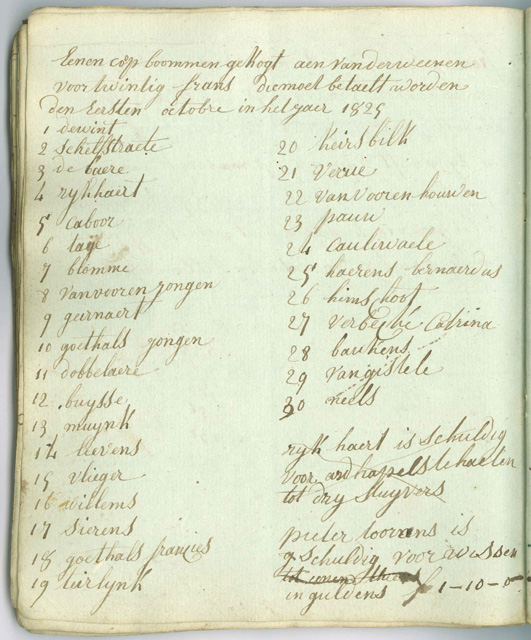 Eenen cop boommen gekogt aen vanderweenen
voor twintig frans diemoet betaelt worden
den Eersten octobre in het jaer 1825
1 dewint
2 schelfstraete
3 de baere
4 rykhaert
5 caboor
6 tage
7 blomme
8 vanvooren jongen
9 geirnaert
10 goethals jongen
11 dobbelaere
12 buysse
13 muynk
14 lievens
15 vlieger
16 willems
17 sierens
18 goethals francies
19 teirlynk
20 keirsbilk
21 Verrie
22 van Vooren houwen
23 pauw
24 caulwaele
25 haerens bernaerdus
26 himschoot
27 verbeche Catrina
28 baukens
29 vangistele
30 neels
ryk haert is schuldig
voor ardhapels te haelen
tot dry stuyvers
pieter loovens is
schuldig voor wissen
in guldens f 1-10-0